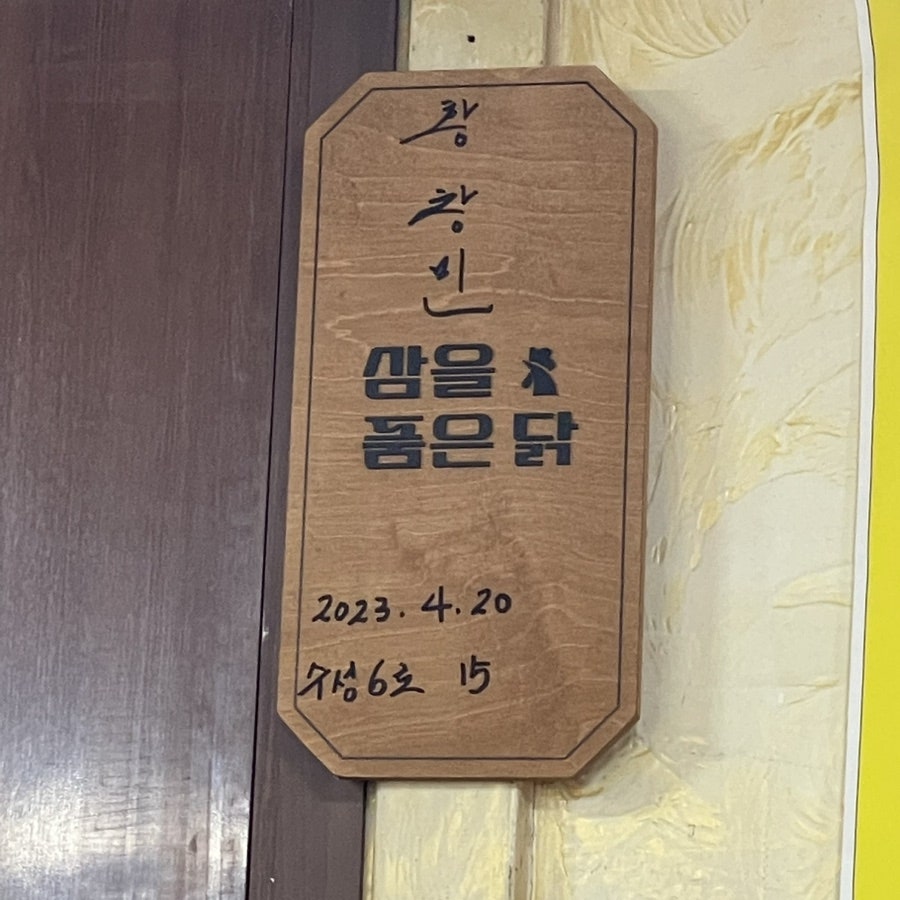 황
창
빈
삼을
품은 닭
2023. 4. 20
수성6로 15